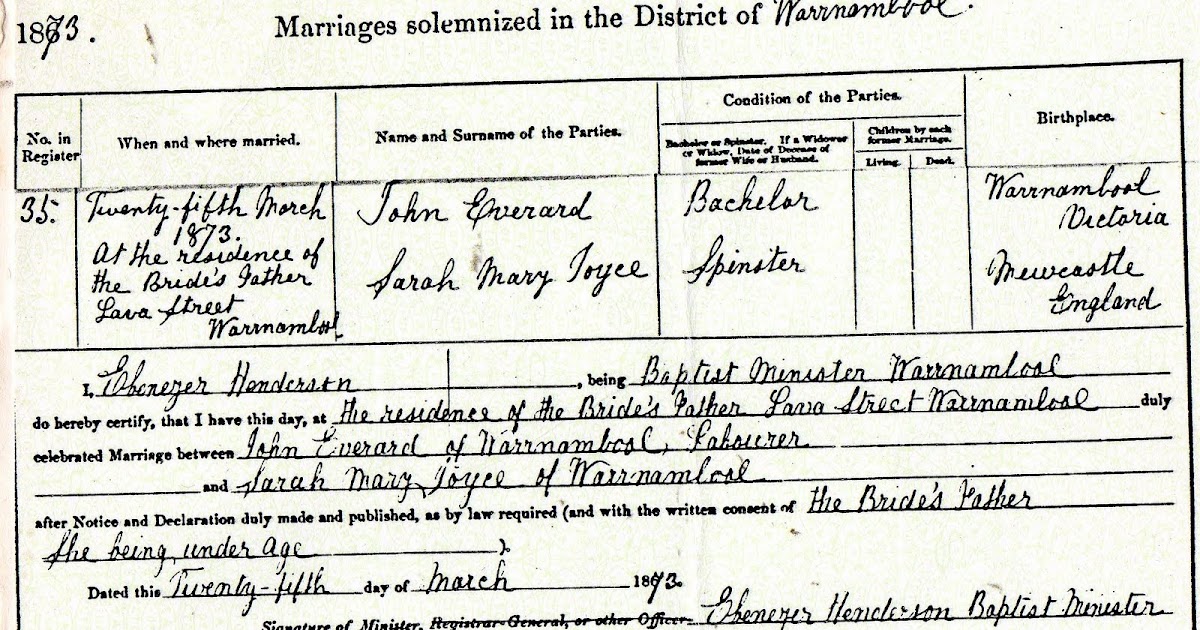 1873. Marriages solemnized in the District of Warrnambool.
No. in Register
When and where married.
Name and Surname of the Parties.
Condition of the Parties.
Bachelor or Spinster. If a Widower or Widow, Date of Decease of former Wife or Husband.
Children by each former Marriage.
Living. Dead.
Birthplace.
35.
Twenty-fifth March
1873.
At the residence of
the Bride's Father
Lava Street
Warrnambool
John Everard
Sarah Mary Joyce
Bachelor
Spinster
Warrnambool
Victoria
Newcastle
England
I, Ebenezer Henderson, being Baptist Minister Warrnambool
do hereby certify, that I have this day, at the residence of the Bride's Father Lava Street Warrnambool duly
celebrated Marriage between John Everard of Warrnambool, Labourer
and Sarah Mary Joyce of Warrnambool
after Notice and Declaration duly made and published, as by law required (and with the written consent of the Bride's Father
She being under age ).
Dated this Twenty-fifth day of March 1873.
Signature of Minister, Registrar-General, or other Officer. Ebenezer Henderson Baptist Minister